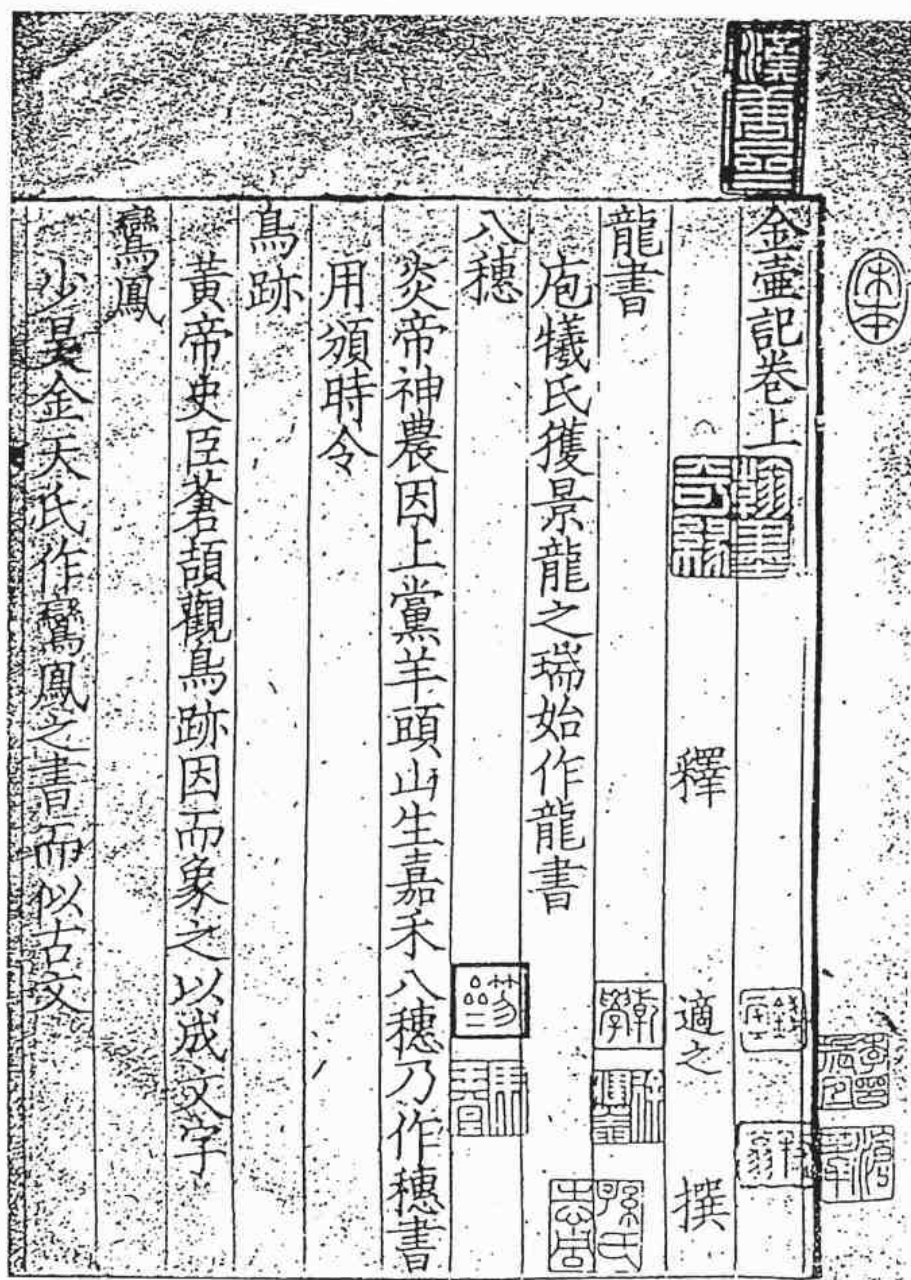 金壷記卷上
釋 適之 撰
龍書
庖犧氏獲景龍之瑞始作龍書
八穗
炎帝神農因上黨羊頭山生嘉禾八穗乃作穗書
用頒時令
鳥跡
黃帝史臣蒼頡觀鳥跡因而象之以成文字
鸞鳳
少昊金天氏作鸞鳳之書而似古文
宋本
翰墨奇緣